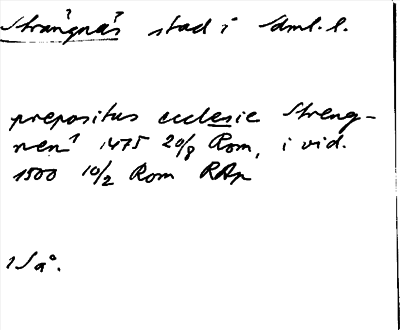 Strängnäs stad i Sdml. l.
prepositus ecclesie Streng-
nen' 1475 20/8 Rom, i vid.
1500 10/2 Rom RAp